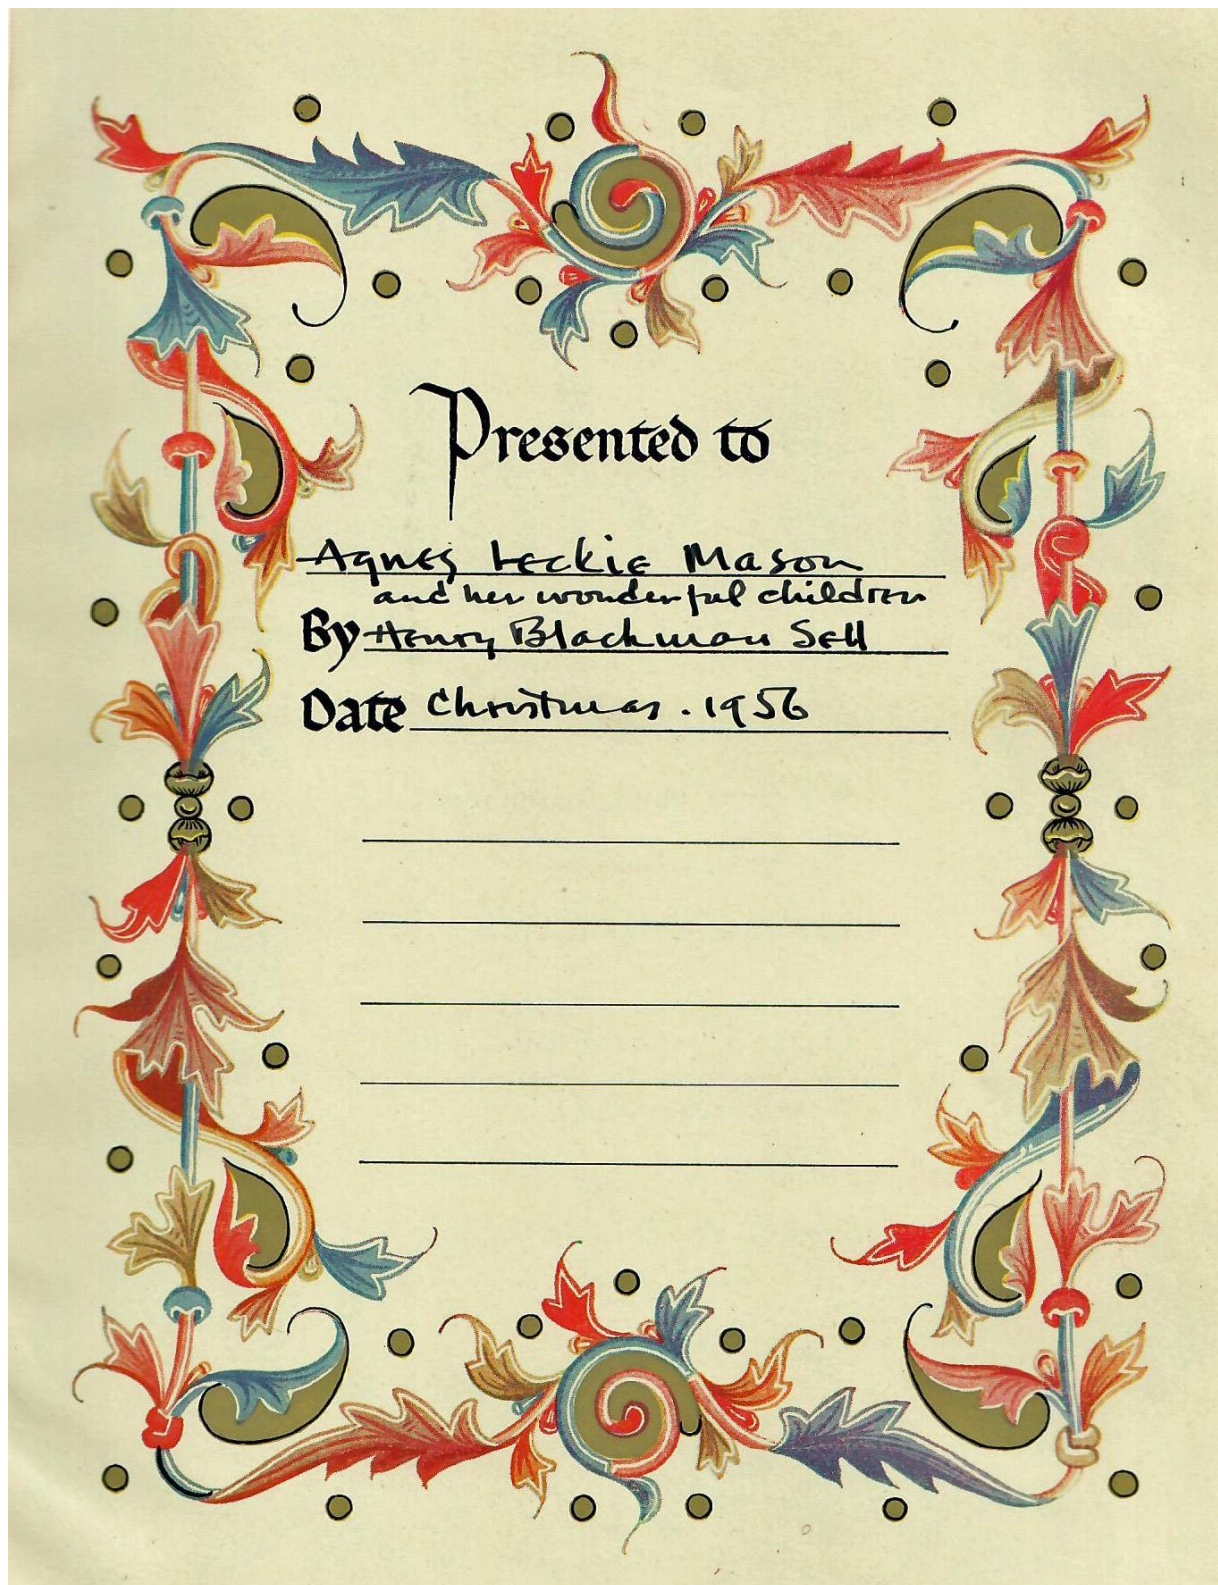 Presented to
Agnes Leckie Mason
and her wonderful children
By Henry Blackman Sell
Date Christmas . 1956